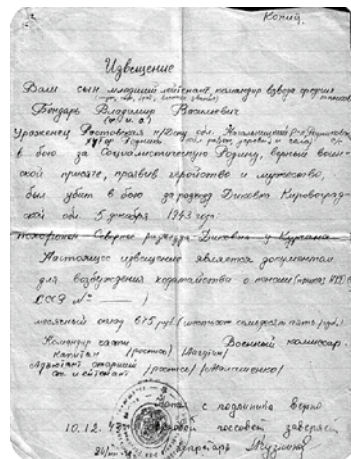 Копия.
Извещение
Ваш сын младший лейтенант командир взвода средних танков
Бондарь Владимир Васильевич
(ф. и. о.)
Уроженец Ростовская н/Дону обл.
хутор
в бою за Социалистическую Родину, верный воин-
ской присяге, проявив геройство и мужество,
был убит в бою за разъезд Диковка Кировоград-
ской обл. 5 декабря 1943 года.
похоронен Севернее разъезда Диковка у Кургана
Настоящее извещение является документом
для возбуждения ходатайства о пенсии (приказ НКО)
СССР № ——— )
месячный оклад 675 руб. (шестьсот семьдесят пять руб.)
Командир части Военный комиссар
капитан /роспись/
Адъютант старший
ст. лейтенант /роспись/
Копия с подлинника верно
10.12.43 поссовет заверяет
секретарь